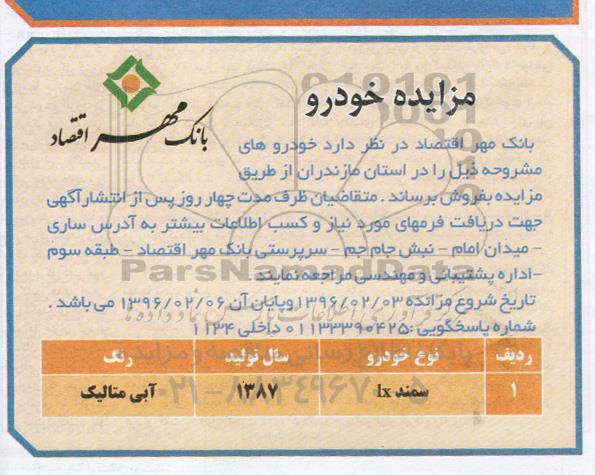 مزایده خودرو
بانک مهر اقتصاد
بانک مهر اقتصاد در نظر دارد خودرو های
مشروحه ذیل را در استان مازندران از طریق
مزایده بفروش برساند . متقاضیان ظرف مدت چهار روز پس از انتشار آگهی
جهت دریافت فرمهای مورد نیاز و کسب اطلاعات بیشتر به آدرس ساری
- میدان امام - نبش جام جم - سرپرستی بانک مهر اقتصاد - طبقه سوم
-اداره پشتیبانی و مهندسی مراجعه نمایند .
تاریخ شروع مزائده ۱۳۹۶/۰۲/۰۳ وپایان آن ۱۳۹۶/۰۲/۰۶ می باشد .
شماره پاسخگویی :۰۱۱۳۳۳۹۰۴۲۵ داخلی ۱۱۳۴
ردیف نوع خودرو سال تولید رنگ
۱ سمند lx ۱۳۸۷ آبی متالیک
ParsNamadData
۰۲۱-۸۸۳۴۹۶۷۰-۵